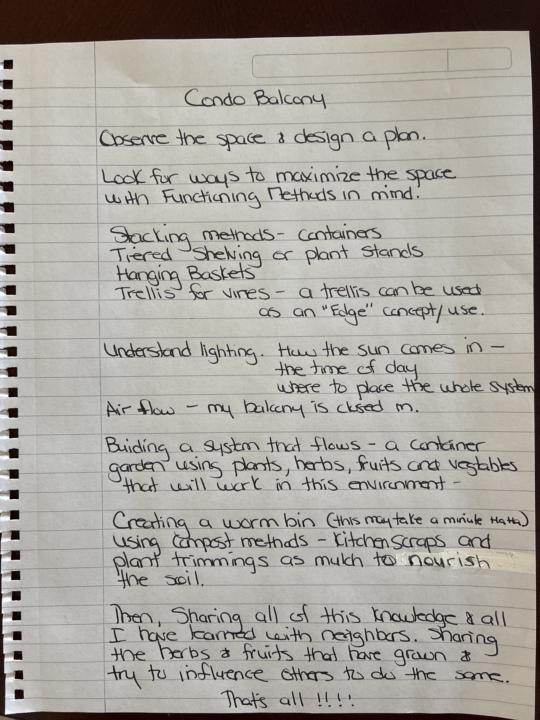 Condo Balcony
Observe the space & design a plan.
Look for ways to maximize the space
with Functioning Methods in mind.
Stacking methods - containers
Tiered Shelving or plant stands
Hanging Baskets
Trellis for vines - a trellis can be used
as an "Edge" concept/use.
Understand lighting. How the sun comes in -
the time of day
where to place the whole system
Air flow - my balcony is closed in.
Buiding a system that flows - a container
garden using plants, herbs, fruits and vegtables
that will work in this environment -
Creating a worm bin (this may take a minute HaHa)
using compost methods - kitchen scraps and
plant trimmings as mulch to nourish
the soil.
Then, Sharing all of this knowledge & all
I have learned with neighbors. Sharing
the herbs & fruits that have grown &
try to influence others to do the same.
That's all !!!!